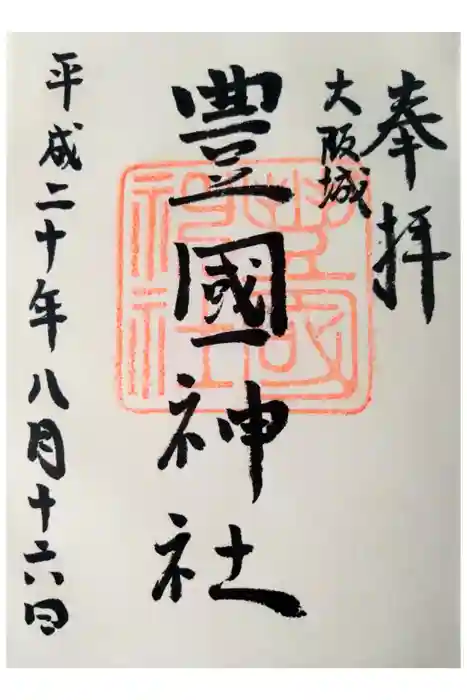 奉拝
大阪城
豐國神社
豊國神社
平成二十年八月十六日